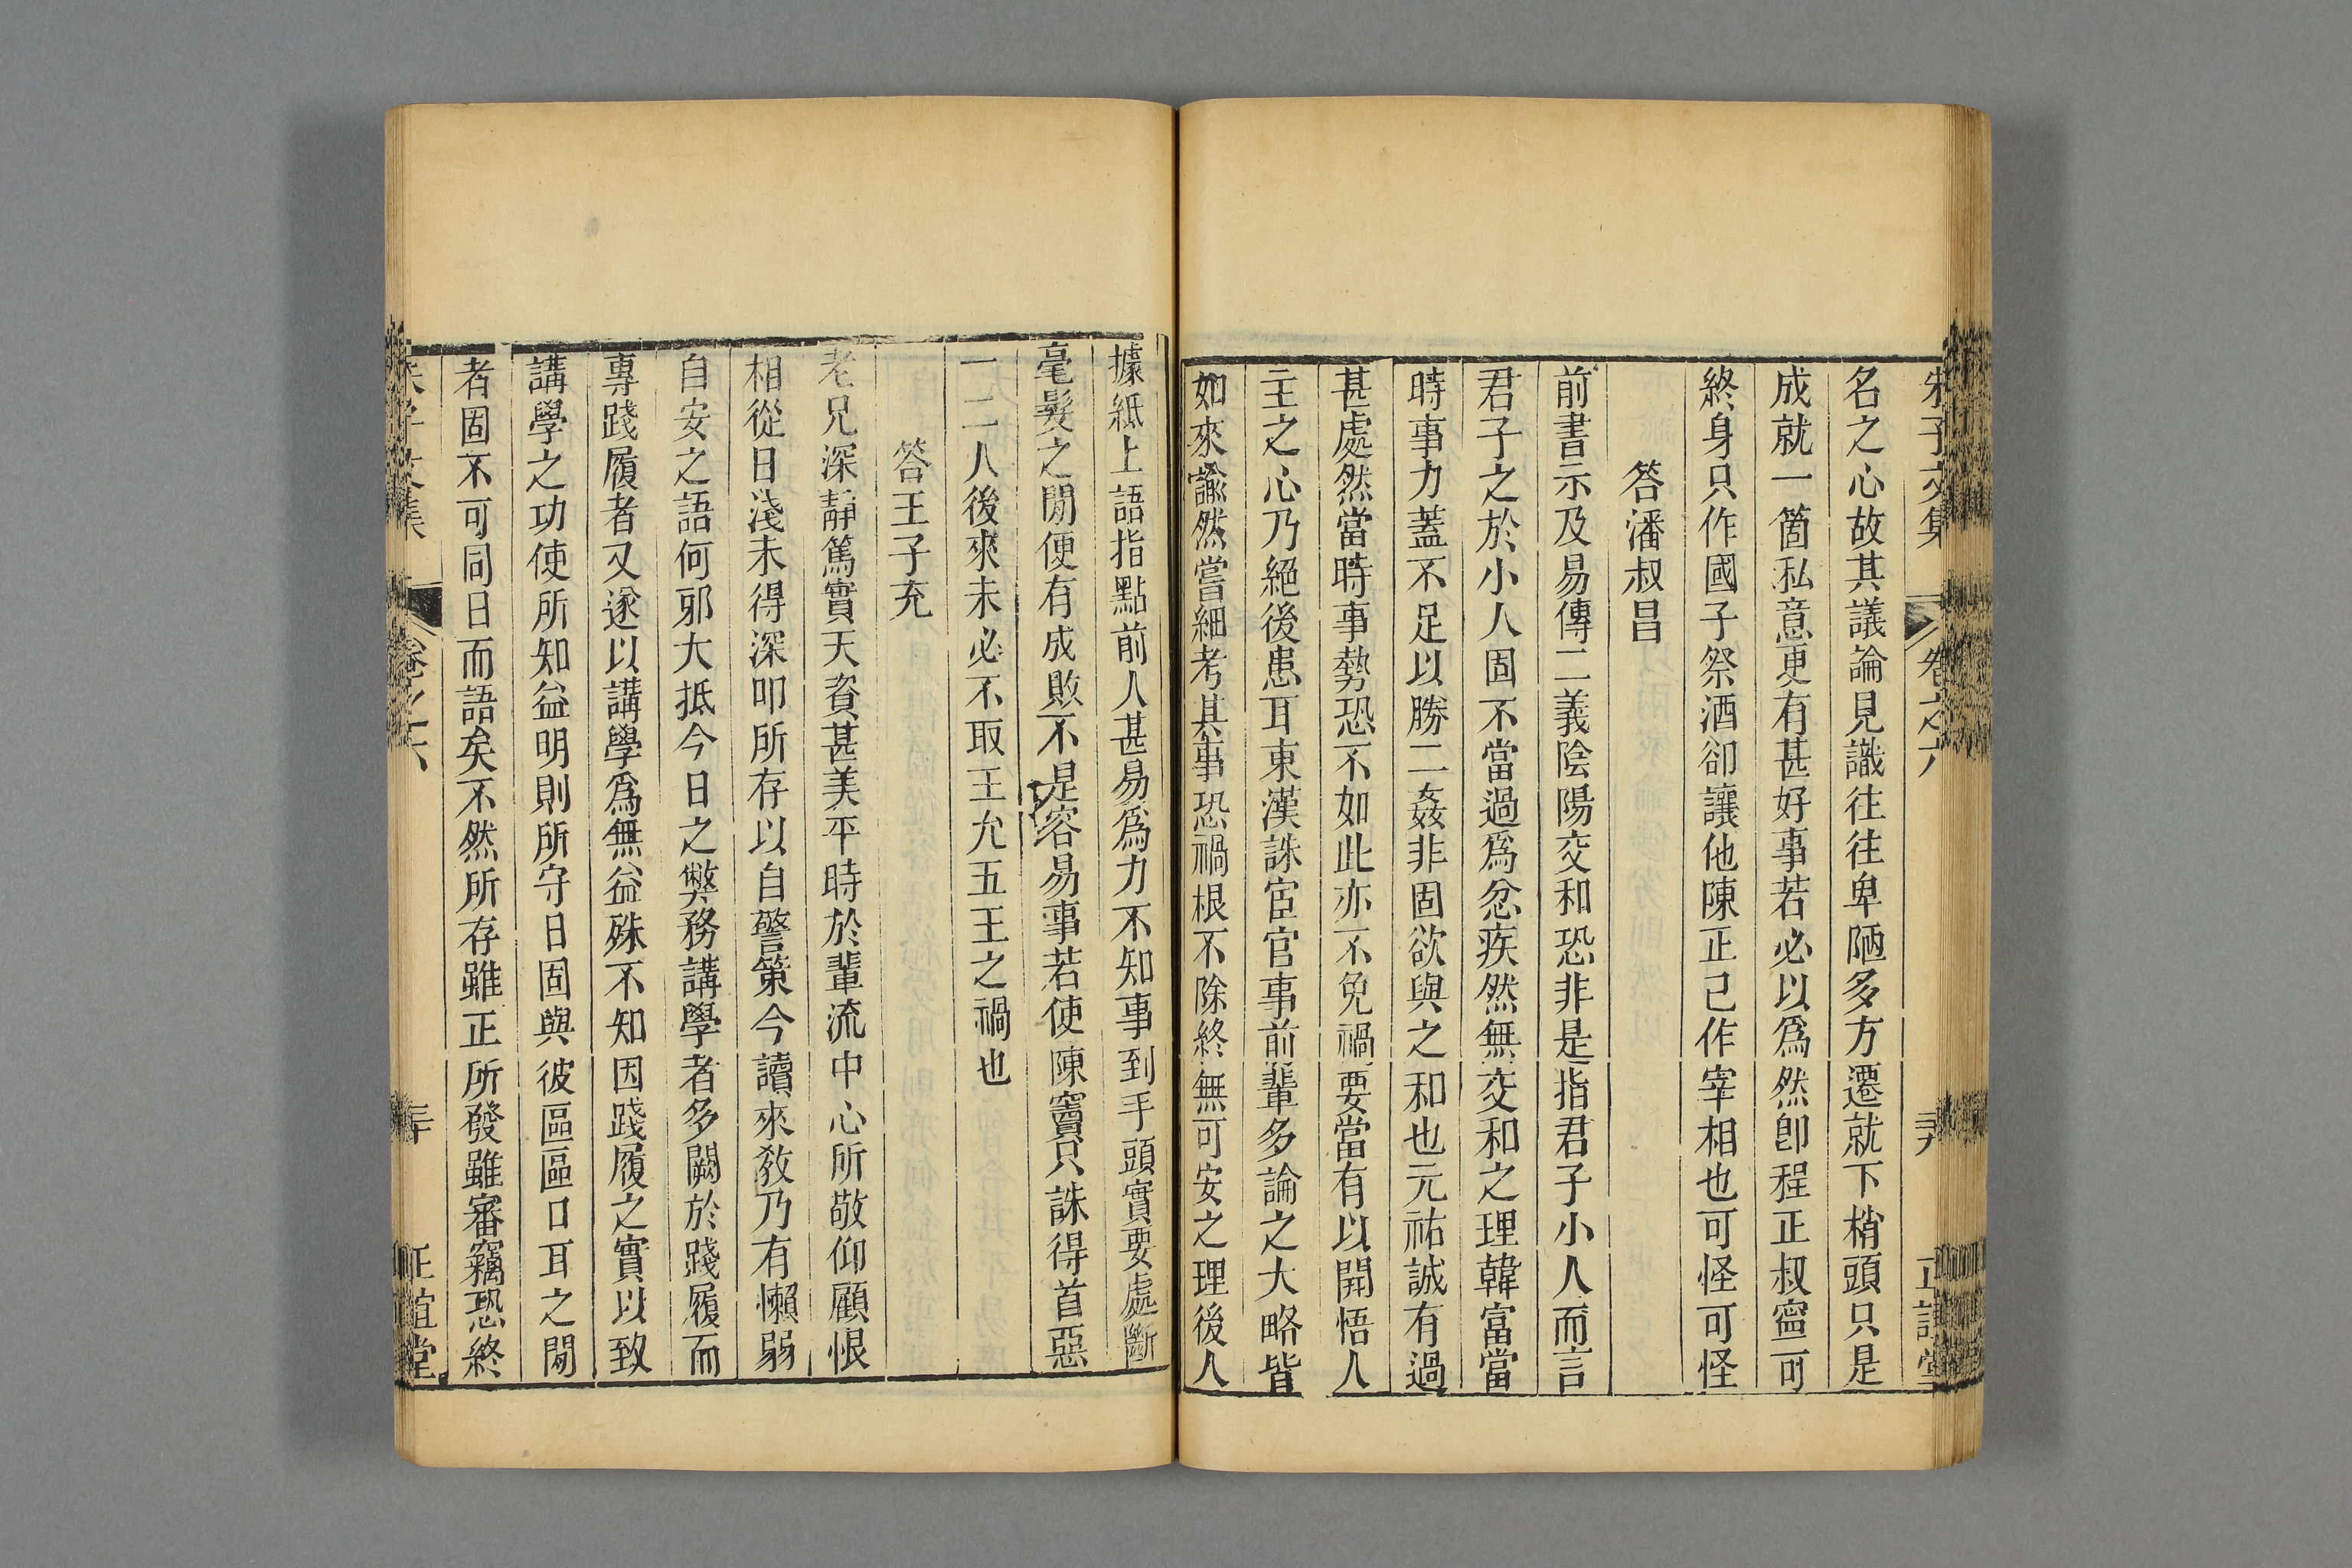 朱子文集 卷之六 正誼堂
名之心故其議論見識往往卑陋多方遷就下梢頭只是
成就一箇私意更有甚好事若必以爲然卽程正叔寧可
終身只作國子祭酒卻讓他陳正己作宰相也可怪可怪
答潘叔昌
前書示及易傳二義陰陽交和恐非是指君子小人而言
君子之於小人固不當過爲忿疾然無交和之理韓富當
時事力蓋不足以勝二姦非固欲與之和也元祐誠有過
甚處然當時事勢恐不如此亦不免禍要當有以開悟人
主之心乃絕後患耳東漢誅宦官事前輩多論之大略皆
如來諭然嘗細考其事恐禍根不除終無可安之理後人
據紙上語指點前人甚易爲力不知事到手頭實要處斷
毫髮之閒便有成敗不是容易事若使陳竇只誅得首惡
一二人後來未必不取王允五王之禍也
答王子充
老兄深靜篤實天資甚美平時於輩流中心所敬仰顧恨
相從日淺未得深叩所存以自警策今讀來敎乃有懶弱
自安之語何邪大抵今日之弊務講學者多闕於踐履而
專踐履者又遂以講學爲無益殊不知因踐履之實以致
講學之功使所知益明則所守日固與彼區區口耳之閒
者固不可同日而語矣不然所存雖正所發雖審竊恐終
朱子文集 卷之六 三十 正誼堂